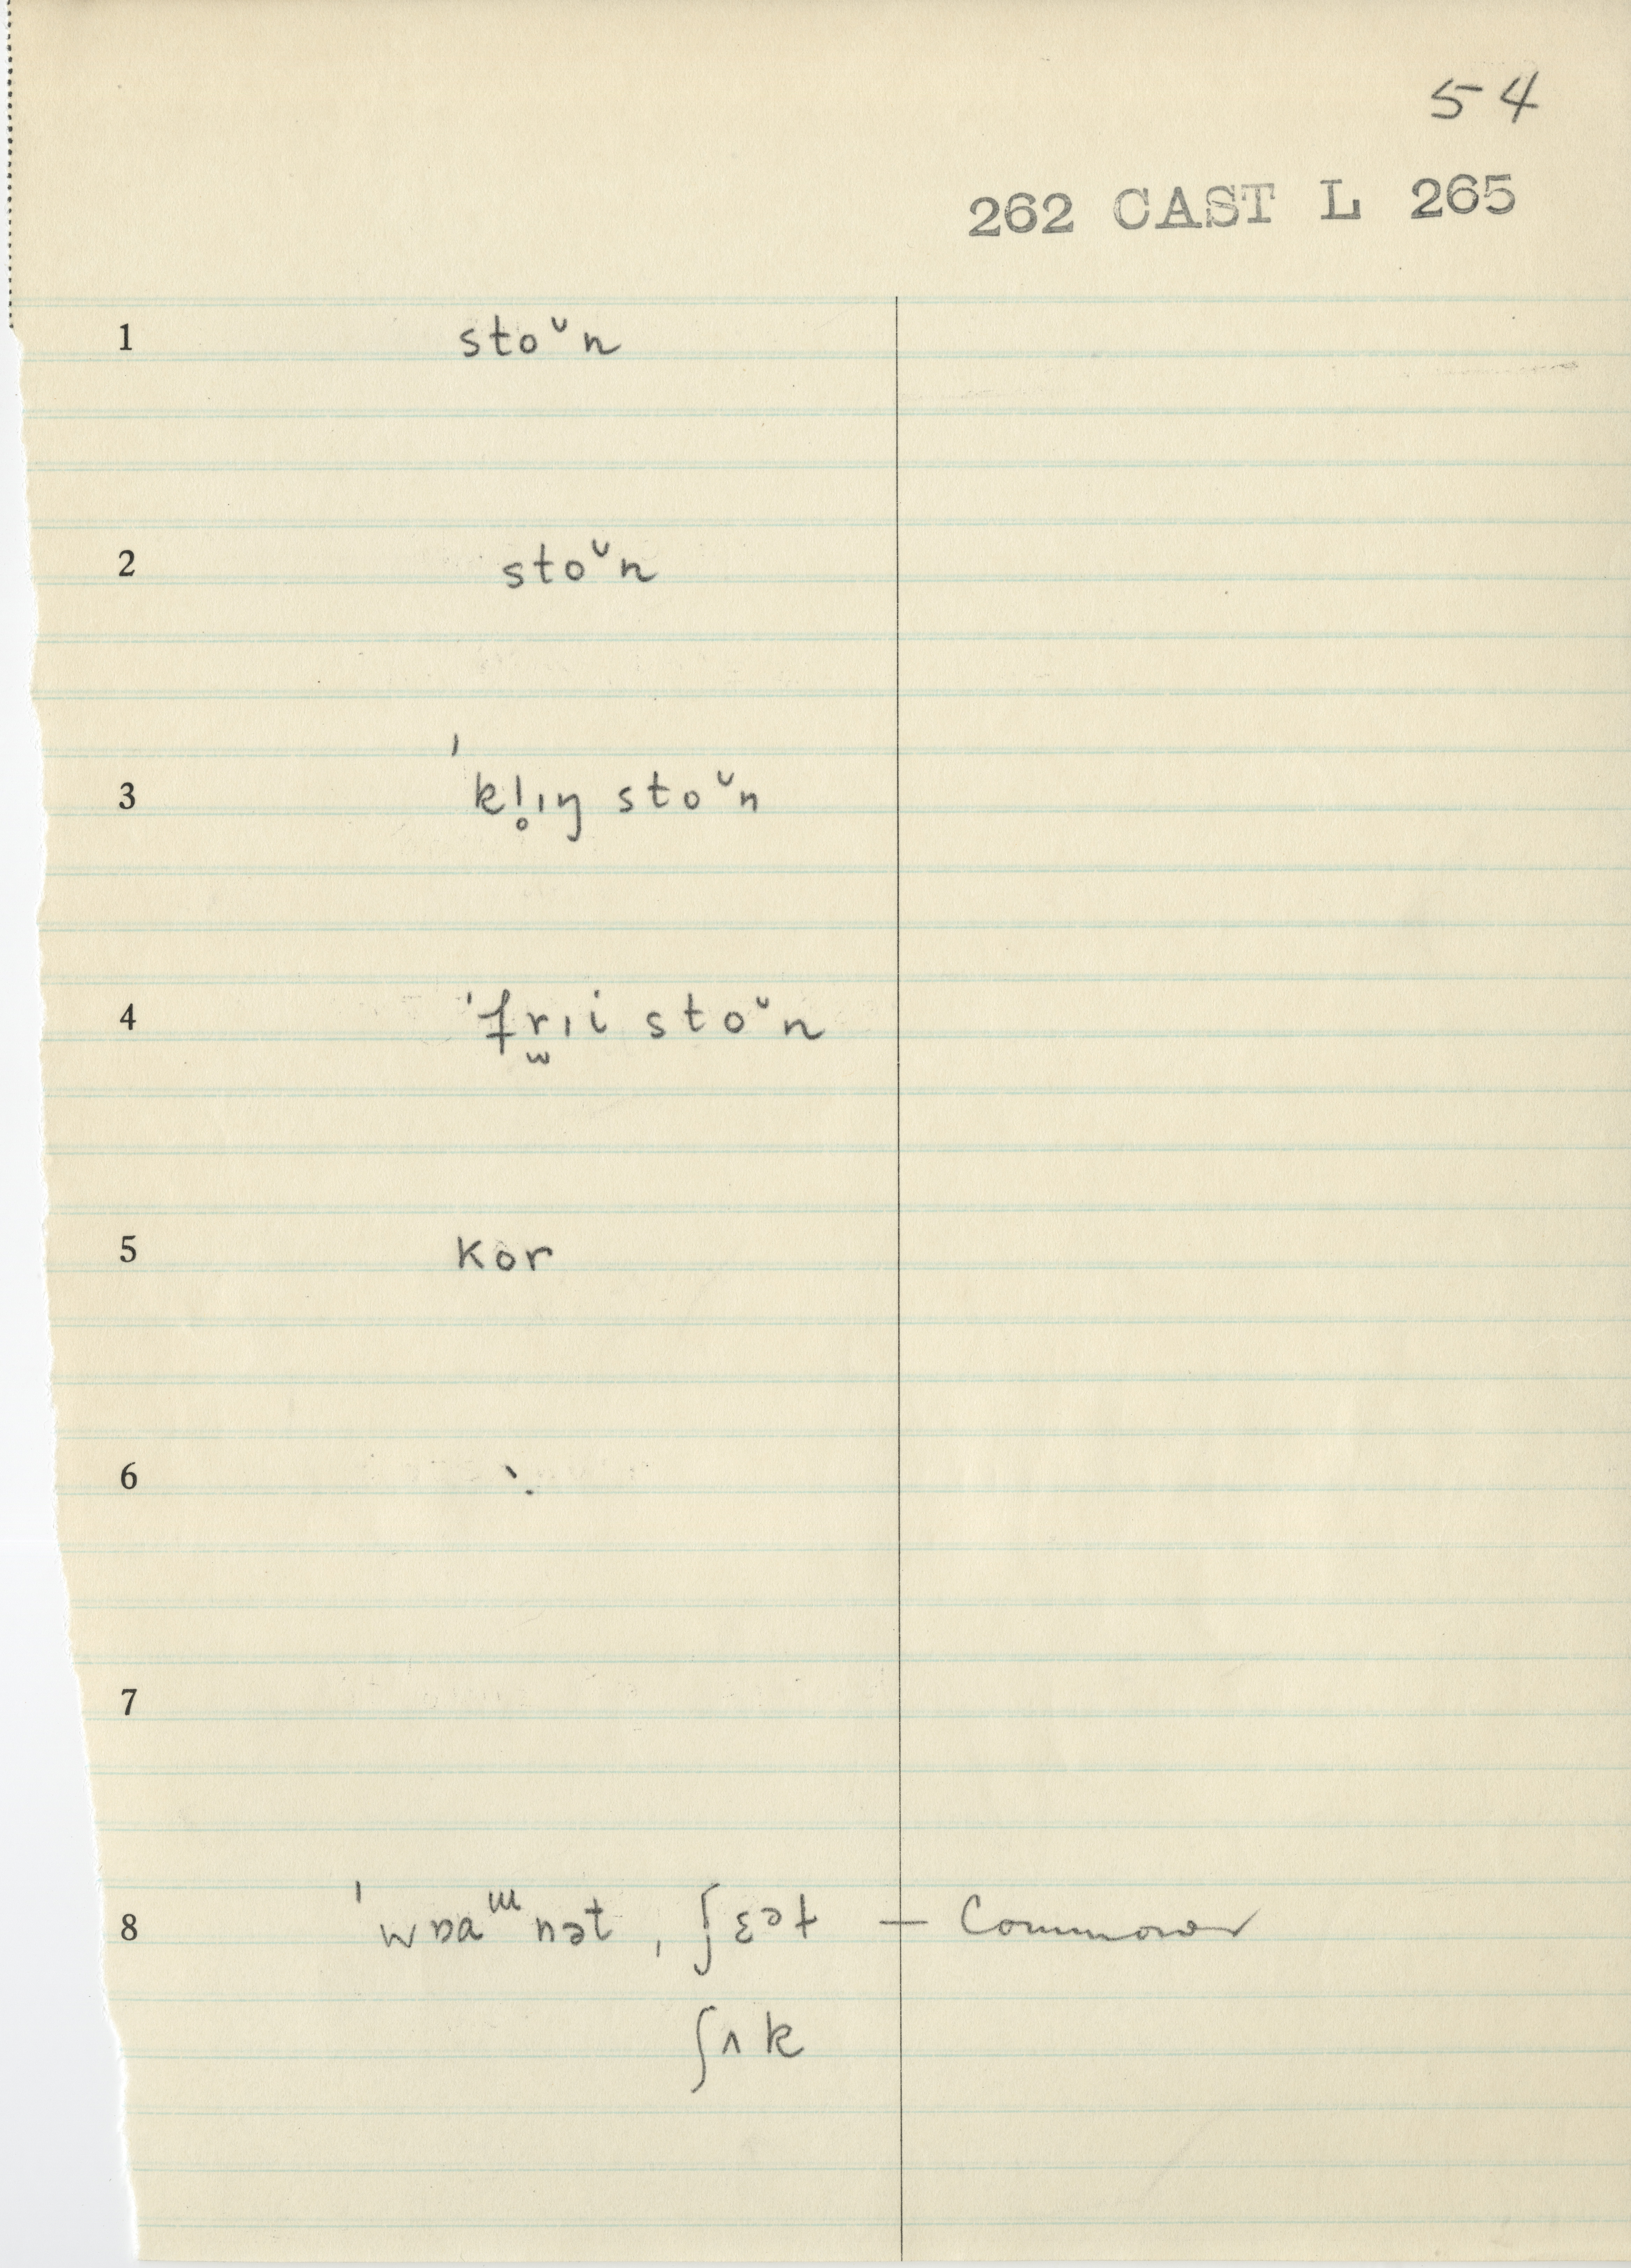 54
262 CAST L 265
1 stoᵕn
2 stoᵕn
3 ˈkl̥ɪŋ stoᵕn
4 ˈfr̫ɪi stoᵕn
5 kor
6 `.
7
8 ˈwɒaᵚnət, ʃɛət — Commoner
ʃʌk